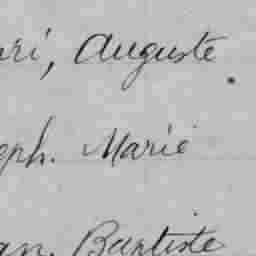 ari, Auguste.
eph. Marie
an. Baptiste